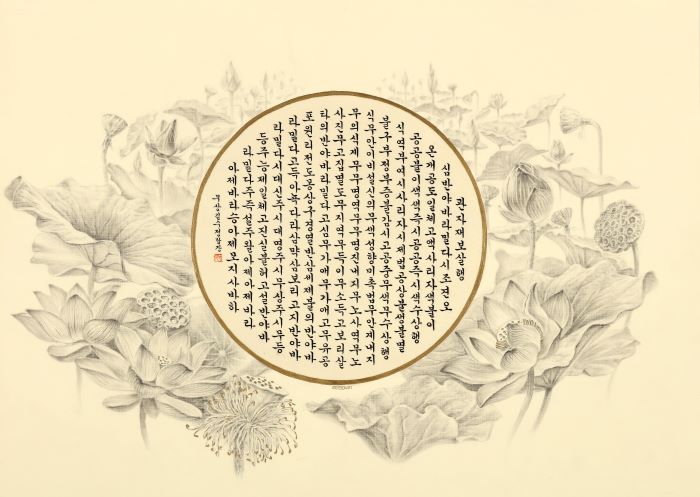 관자재보살행
심반야바라밀다시조견오
온개공도일체고액사리자색불이
공공불이색색즉시공공즉시색수상행
식역부여시사리자시제법공상불생불멸
불구부정부증불감시고공중무색무수상행
식무안이비설신의무색성향미촉법무안계내지
무의식계무무명역무무명진내지무노사역무노
사진무고집멸도무지역무득이무소득고보리살
타의반야바라밀다고심무가애무가애고무유공
포원리전도몽상구경열반삼세제불의반야바
라밀다고득아녹다라삼막삼보리고지반야바
라밀다시대신주시대명주시무상주시무등
등주능제일체고진실불허고설반야바
라밀다주즉설주왈아제아제바라
아제바라승아제모지사바하